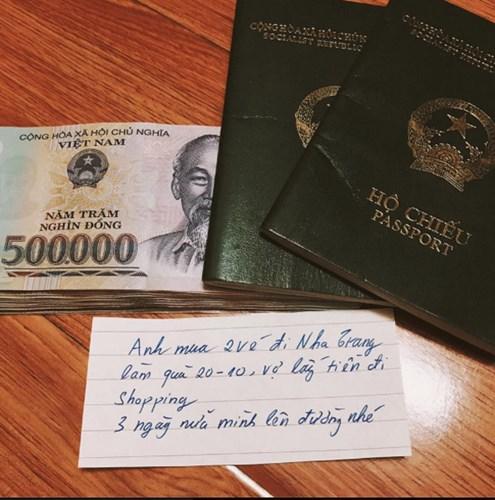 CỘNG HÒA XÃ HỘI CHỦ NGHĨA
VIỆT NAM
NĂM TRĂM
NGHÌN ĐỒNG
500000
CỘNG HÒA XÃ HỘI CHỦ
SOCIALIST REPUBLIC
CỘNG HÒA XÃ HỘI CHỦ
SOCIALIST REPUBLIC
HỘ CHIẾU
PASSPORT
Anh mua 2 vé đi Nha Trang
làm quà 20-10, vợ lấy tiền đi
Shopping
3 ngày nữa mình lên đường nhé